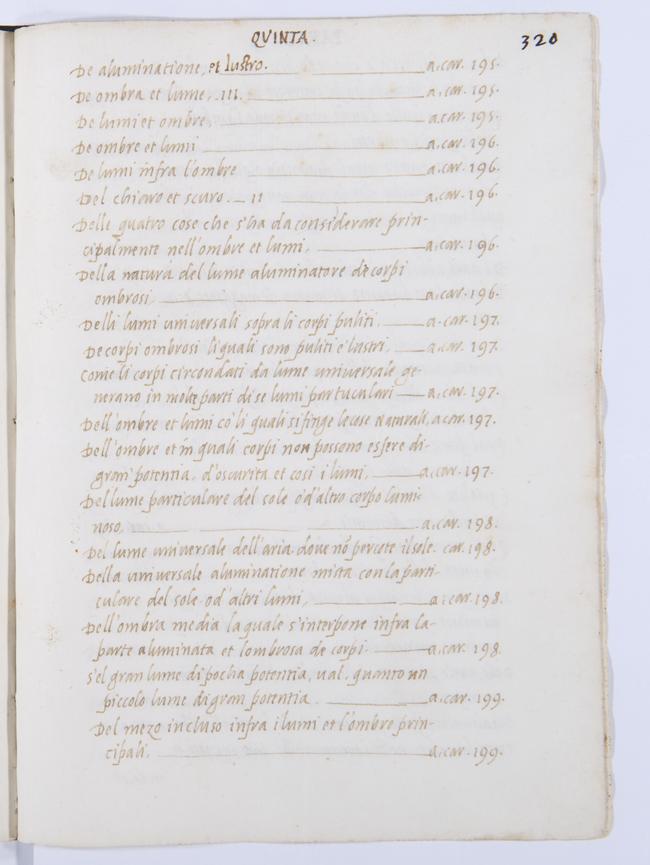 QVINTA.
320
De aluminatione, et lustro. a. car. 195.
De ombra et lume, III. a. car. 195.
De lumi et ombre a. car. 195.
De ombre et lumi a. car. 196.
De lumi infra l'ombre a. car. 196.
Del chiaro et scuro. II a. car. 196.
Delle quatro cose che s'ha da considerare prin-
cipalmente nell'ombre et lumi. a. car. 196.
Della natura del lume aluminatore de corpi
ombrosi a. car. 196.
Delli lumi universali sopra li corpi puliti. a. car. 197.
De corpi ombrosi li quali sono puliti e lustri. a. car. 197.
Come li corpi circondati da lume universale ge-
nerano in molte parti di se lumi partuculari a. car. 197.
Dell'ombre et lumi cō li quali si finge le cose naturali, a car 197.
Dell'ombre et in quali corpi non possono essere di-
gran potentia, d'oscurita et cosi i lumi, a. car. 197.
Del lume particulare del sole o d'altro corpo lumi-
noso. a. car. 198.
Del lume universale dell'aria dove nō percote il sole. car. 198.
Della universale aluminatione mista con la parti-
culare del sole od'altri lumi, a. car. 198.
Dell'ombra media la quale s'interpone infra la-
parte aluminata et l'ombrosa de corpi a. car. 198.
S'el gran lume di pocha potentia, val, quanto un
piccolo lume di gran potentia. a. car. 199.
Del mezo incluso infra i lumi et l'ombre prin-
cipali. a. car. 199.